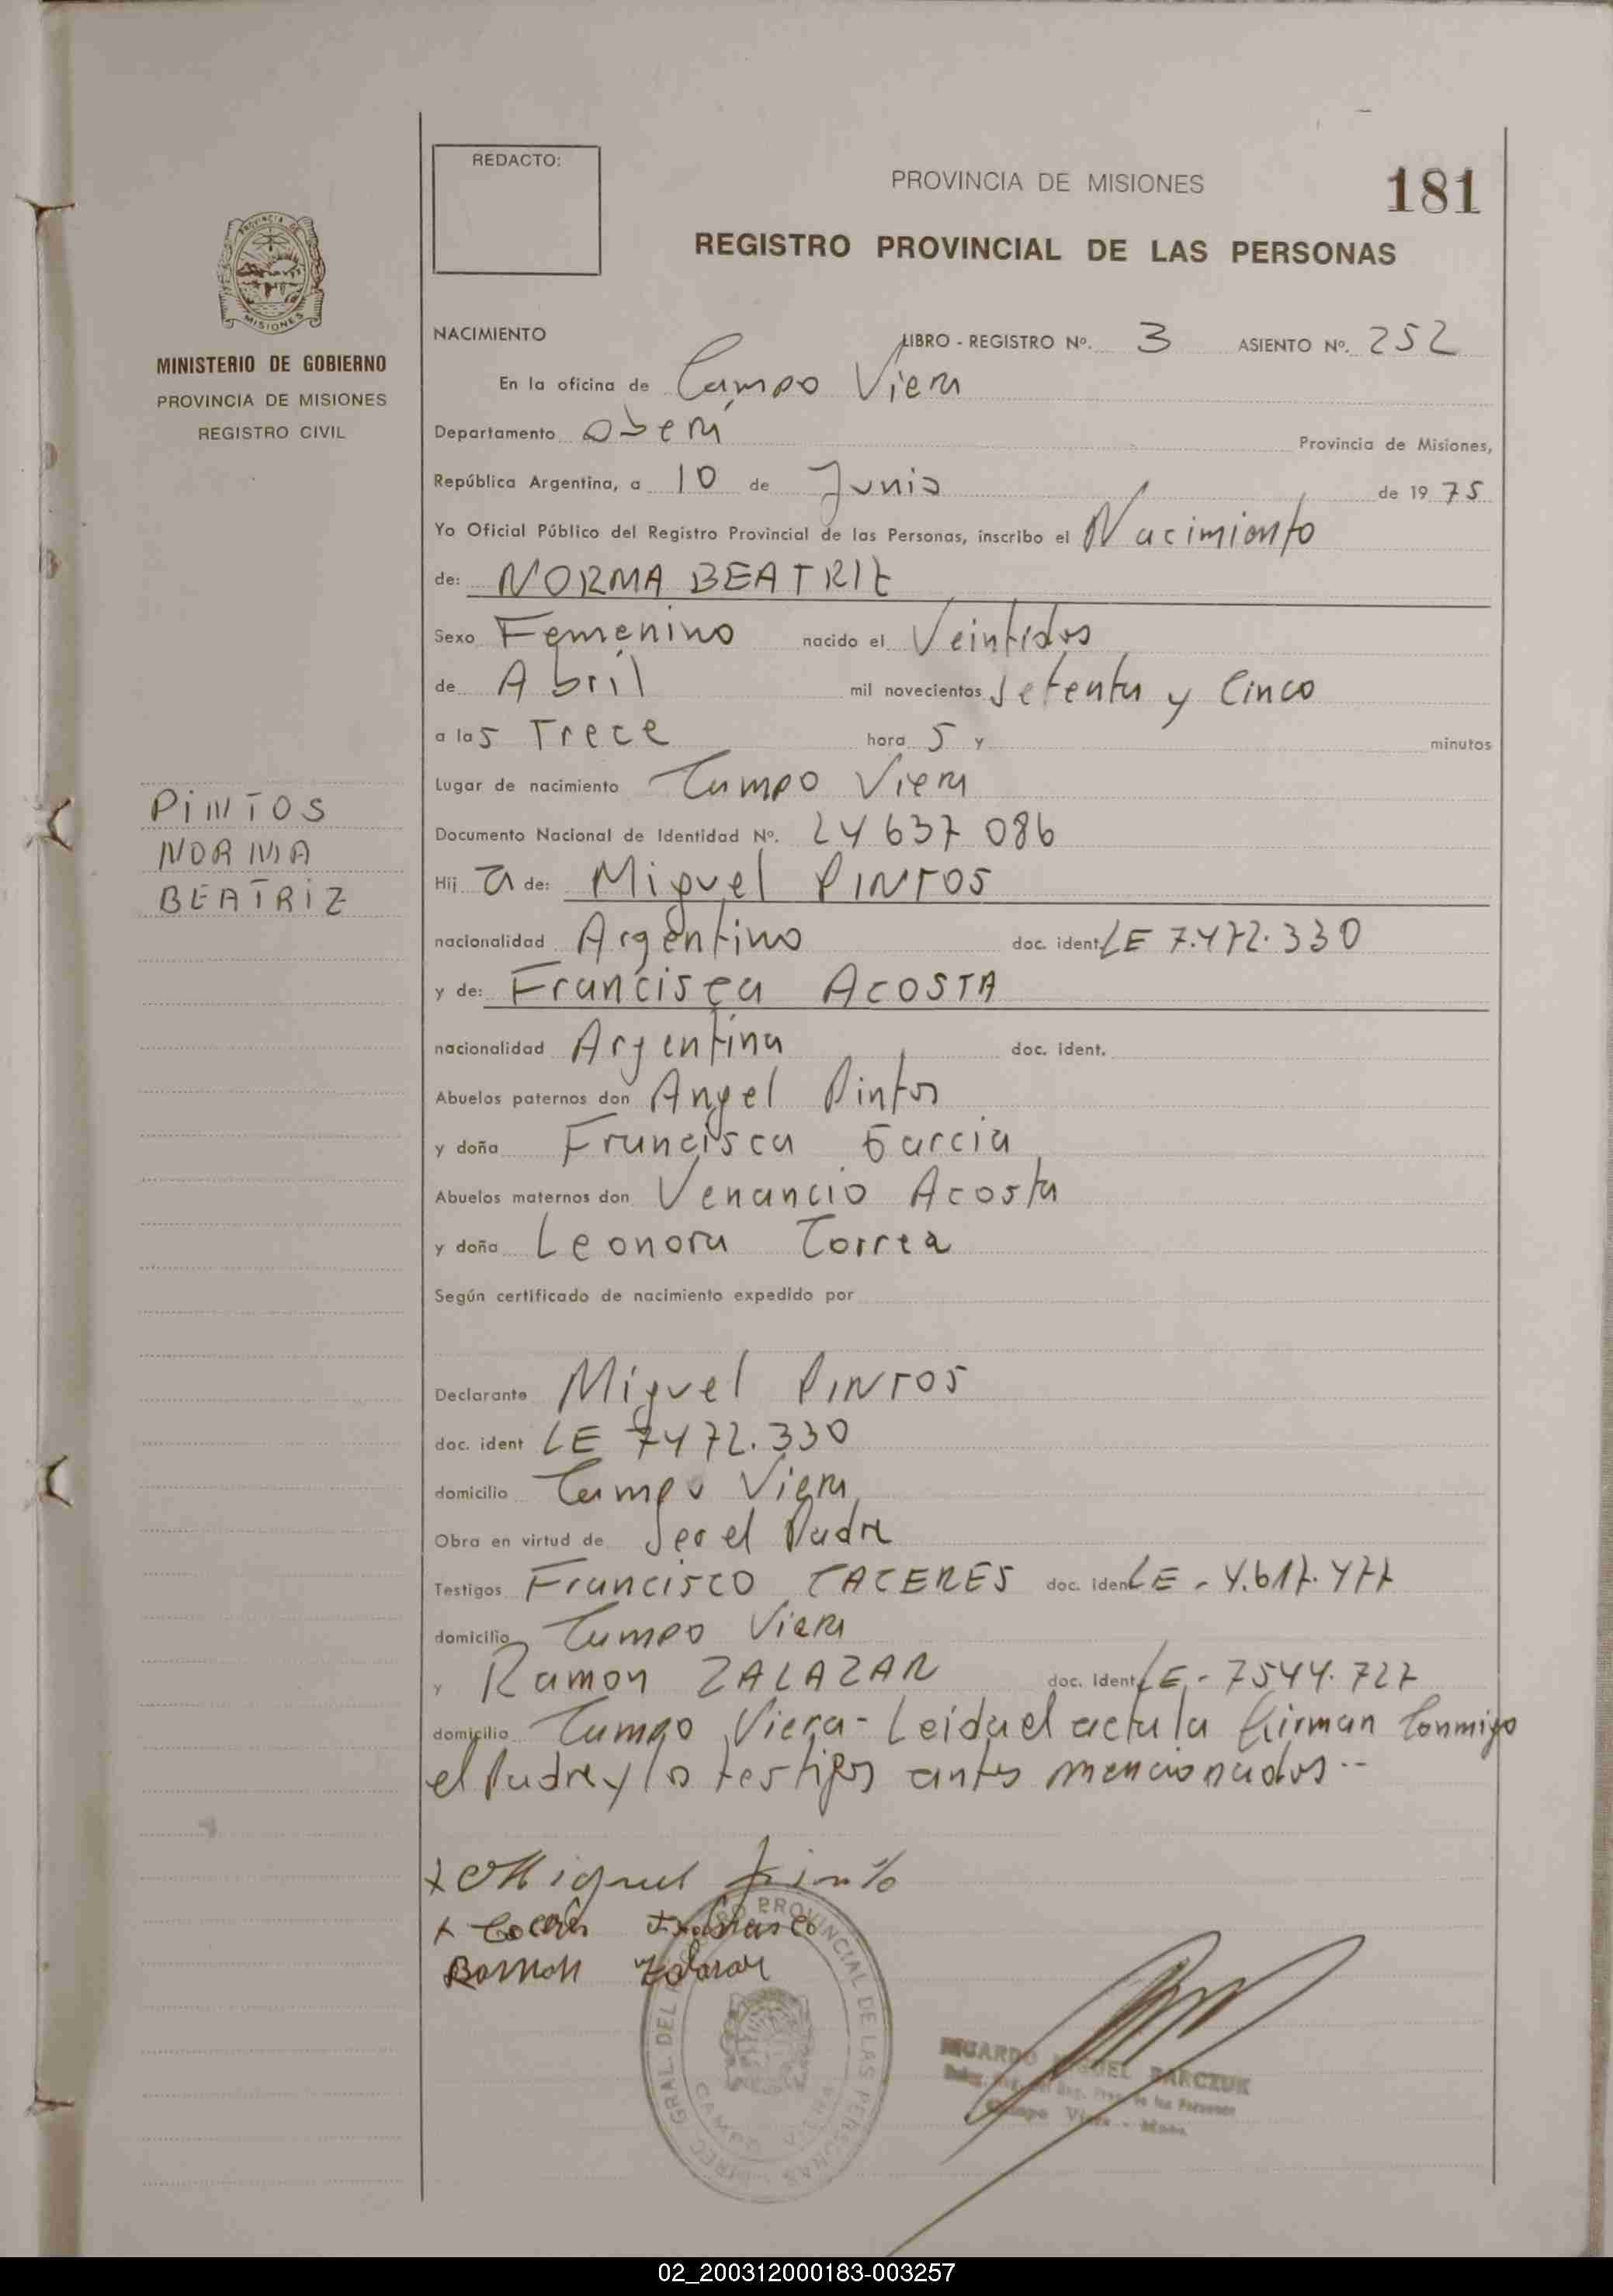 REDACTO:
PROVINCIA DE MISIONES
181
REGISTRO PROVINCIAL DE LAS PERSONAS
PROVINCIA DE
MISIONES
MINISTERIO DE GOBIERNO
PROVINCIA DE MISIONES
REGISTRO CIVIL
PINTOS
NORMA
BEATRIZ
NACIMIENTO LIBRO - REGISTRO Nº. 3 ASIENTO Nº. 252
En la oficina de Campo Viera
Departamento Oberá Provincia de Misiones,
República Argentina, a 10 de Junio de 19 75
Yo Oficial Público del Registro Provincial de las Personas, inscribo el Nacimiento
de: NORMA BEATRIZ
Sexo Femenino nacido el Veintidos
de Abril mil novecientos setenta y Cinco
a las Trece hora s y minutos
Lugar de nacimiento Campo Viera
Documento Nacional de Identidad Nº. 24 637 086
Hij a de: Miguel PINTOS
nacionalidad Argentino doc. ident. LE 7.472.330
y de: Francisca ACOSTA
nacionalidad Argentina doc. ident.
Abuelos paternos don Angel Pintos
y doña Francisca Garcia
Abuelos maternos don Venancio Acosta
y doña Leonora Correa
Según certificado de nacimiento expedido por
Declarante Miguel PINTOS
doc. ident LE 7472.330
domicilio Campo Viera
Obra en virtud de Ser el Padre
Testigos Francisco CACERES doc. ident LE - 4.617.477
domicilio Campo Viera
y Ramon ZALAZAR doc. ident LE - 7544.727
domicilio Campo Viera - Leida el acta la firman Conmigo
el Padre y los testigos antes mencionados --
x Miguel Pinto
x Caceres Francisco
Ramon Zalazar
DIREC. GRAL. DEL REGISTRO PROVINCIAL DE LAS PERSONAS
CAMPO VIERA
RICARDO MIGUEL BARCZUK
Reg. Prov. de las Personas
Campo Viera - Mnes.
02_200312000183-003257